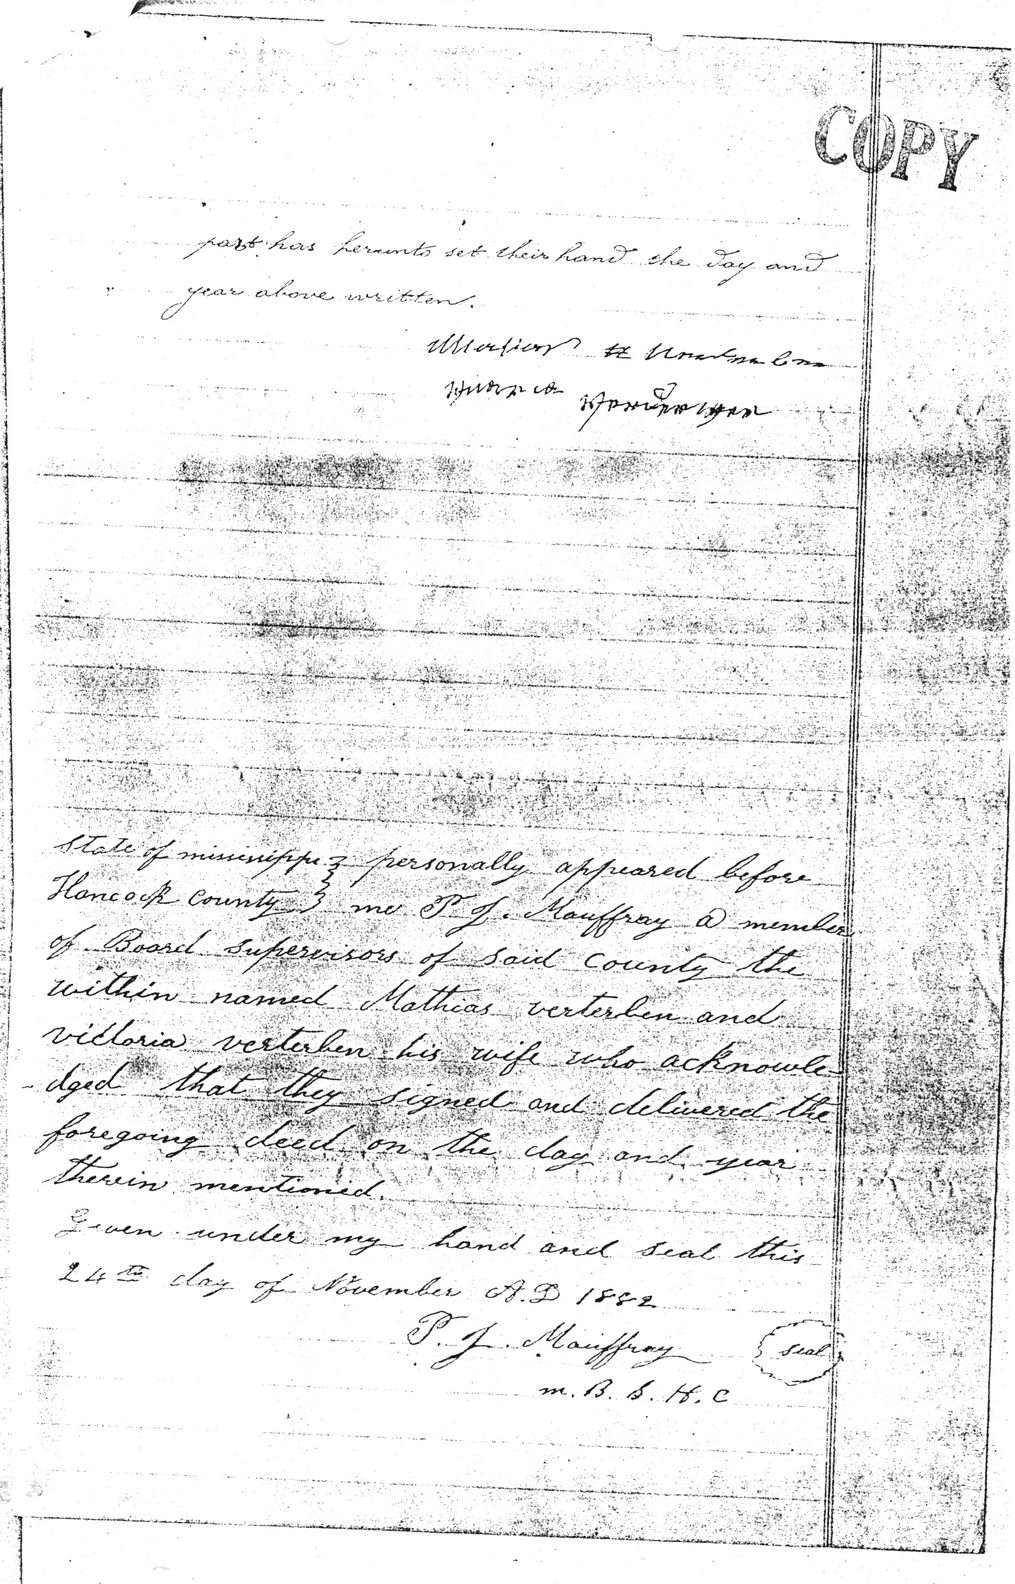 COPY
part has herunto set their hand the day and
year above written.
State of mississippi } personally appeared before
Hancock County } me P J. Mauffray a member
of Board supervisors of said County the
within named Mathias verterben and
victoria verterben his wife who acknowle-
dged that they signed and delivered the
foregoing deed on the day and year
therein mentioned.
Given under my hand and seal this
24th day of November A.D 1882
P. J. Mauffray seal
m. B. S. H. C